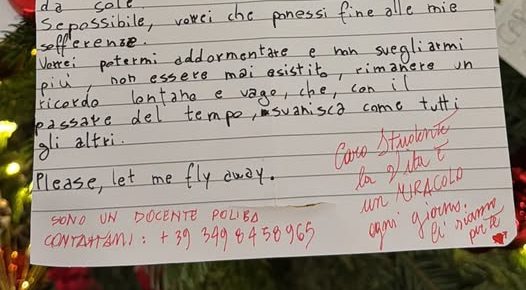 da sole.
Se possibile, vorrei che ponessi fine alle mie
sofferenze.
Vorrei potermi addormentare e non svegliarmi
più, non essere mai esistito, rimanere un
ricordo lontano e vago, che, con il
passare del tempo, svanisca come tutti
gli altri.
Please, let me fly away.
SONO UN DOCENTE POLIBA
CONTATTAMI: +39 3498458965
Caro Studente
la Vita È
un MIRACOLO
ogni giorno.
Ci siamo
per te